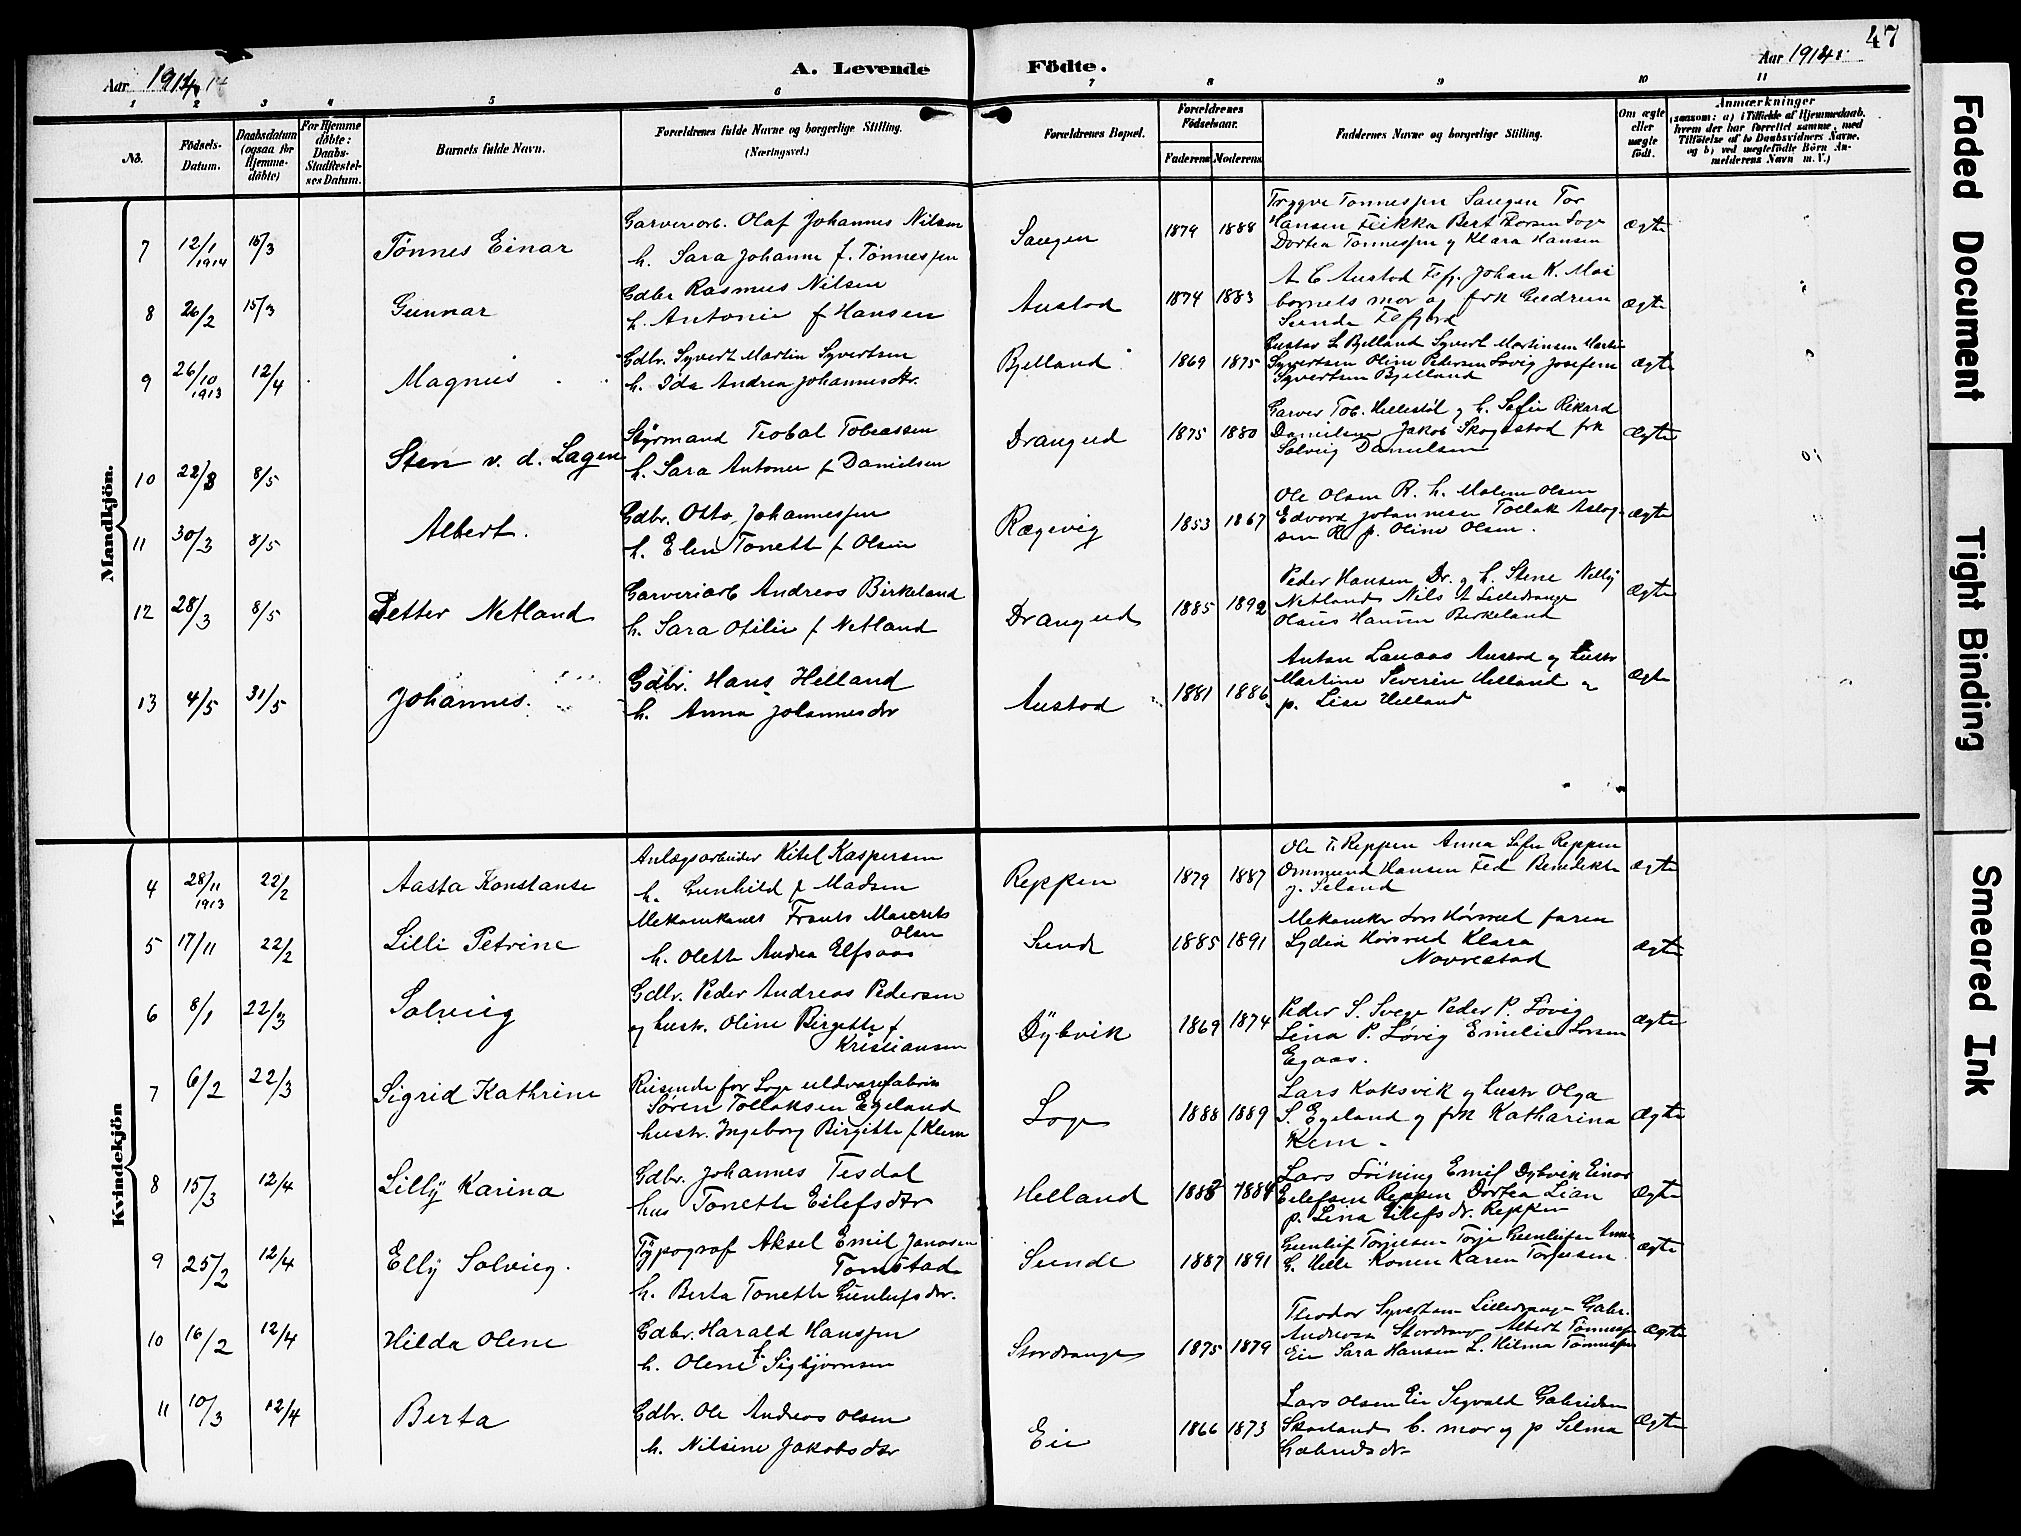 47
Aar 1914
A. Levende Födte.
Aar 1914
1 2 3 4 5 6 7 8 9 10 11
No.
Födsels-Datum.
Daabsdatum (ogsaa for Hjemme-döbte)
For Hjemme döbte: Daabs-Stadfæstelses Datum.
Barnets fulde Navn.
Forældrenes fulde Navne og borgerlige Stilling.
(Næringsvei.)
Forældrenes Bopæl.
Forældrenes Födselsaar.
Faderens Moderens
Faddernes Navne og borgerlige Stilling.
Om ægte eller uægte födt.
Anmærkninger
(saasom: a) i Tilfælde af Hjemmedaab, hvem der har forrettet samme, med Tilföielse af to Daabsvidners Navne. og b) ved uægtefödte Börn Anmelderens Navn m. V.)
Mandkjön.
7 12/1 1914 15/3 Tönnes Einar
Garveriarb. Olaf Johannes Nilsen
h. Sara Johanne f. Tönnessen
Saugen 1879 1888
Trygve Tönnessen Saugen Tor
Hansen Feikka Bert Thorsen Loge
Dortea Tönnessen og Klara Hansen
Ægte
8 26/2 15/3 Gunnar
Gdbr Rasmus Nilsen
h. Antonie f Hansen
Austad 1874 1883
A C Austad Johan K. Moi
barnets mor og frk Gudrun
Sunde
Ægte
9 26/10 1913 12/4 Magnus
Gdbr. Syvert Martin Syvertsen
h. Ida Andrea Johannesdtr.
Bjelland 1869 1875
Gustav L Bjelland Syvert Martinsen
Syvertsen Oline Pedersen Lovig Josefine
Syvertsen Bjelland
Ægte
10 22/3 8/5 Sten v. d. Lagen
Styrmand Teobal Tobiassen
h. Sara Antonie f Danielsen
Drangeid 1875 1880
Garver Tob. Hellestöl og h. Sofie Rikard
Danielsen Jakob Skogestad frk
Solveig Danielsen
Ægte
11 30/3 8/5 Albert.
Gdbr. Otto Johannessen
h. Elen Tonette f Olsen
Rægevig 1853 1867
Ole Olsen R. h. Malene Olsen
Edvard Johannesen Tollak Aslag-
sen R p. Oline Olsen.
Ægte
12 28/3 8/5 Petter Netland
Garveriarb Andreas Birkeland
h. Sara Otilie f Netland
Drangeid 1885 1892
Peder Hansen Dr. og h. Stene Nelly
Netland Nils A Lilledrange
Olaus Hansen Birkeland
Ægte
13 4/5 31/5 Johannes.
Gdbr. Hans Helland
h. Anna Johannesdtr
Austad 1881 1886
Anton Lauaas Austad og hustr
Martine Severin Helland og
p. Lise Helland
Ægte
Kvindekjön
4 28/11 1913 22/2 Aasta Konstanse
Anlægsarbeider Kitel Kaspersen
h. Gunhild f Madsen
Reppen 1879 1887
Ole T. Reppen Anna Sofie Reppen
Ommund Hansen Fed Benedikte
g. Seland
Ægte
5 17/11 22/2 Lilli Petrine
Mekanikaner Frants
Olsen
h. Olette Andrea Elfsaas
Sund 1885 1891
Mekaniker Lars Hörsrud faren
Lydia Hörsrud Klara
Novrestad
Ægte
6 8/1 22/3 Solveig
Gdbr. Peder Andreas Pedersen
og hustr. Oline Birgitte f
Kristiansen
Dybvik 1869 1874
Peder S. Svege Peder P. Lövig
Lina P. Lövig Emilie Larsen
Egaas.
Ægte
7 6/2 22/3 Sigrid Kathrine
Reisende for Loge uldvarefabrik
Sören Tollaksen Egeland
hustr. Ingeborg Birgitte f Klem
Loge 1888 1889
Lars Koksvik og hustr Olga
S. Egeland og frk Katharina
Klem
Ægte
8 15/3 12/4 Lilly Karina
Gdbr. Johannes Tesdal
hus Tonette Eilefsdtr
Helland 1888 1884
Lars Emil Dybvik Einar
Eilefsen Reppen Dortea Lian
p. Lina Eilefsdr. Reppen
Ægte
9 25/2 12/4 Elly Solveig.
Typograf Aksel Emil Janasen
Tomstad
h. Berta Tonette Gunleifsdtr.
Sunde 1887 1891
Gunleif Torjesen Torje Gunleifsen
G. Helle Konen Karen Torjesen
Ægte
10 16/2 12/4 Hilda Olene
Gdbr. Harald Hanssen
h. Olene f Sigbjörnsen
Stordrange 1875 1879
Theodor Syvertsen Lilledrange Gabr.
Andreasen Stordrange Albert Tönnessen
Eie Sara Hansen L. Hilma Tönnessen
Ægte
11 10/3 12/4 Berta
Gdbr. Ole Andreas Olsen
h. Nilsine Jakobsdtr
Eie 1866 1873
Lars Olsen Eie Sigvald Gabrielsen
Skarland b. mor og p Selma
Gabrielsdr.
Ægte
Faded Document
Tight Binding
Smeared Ink